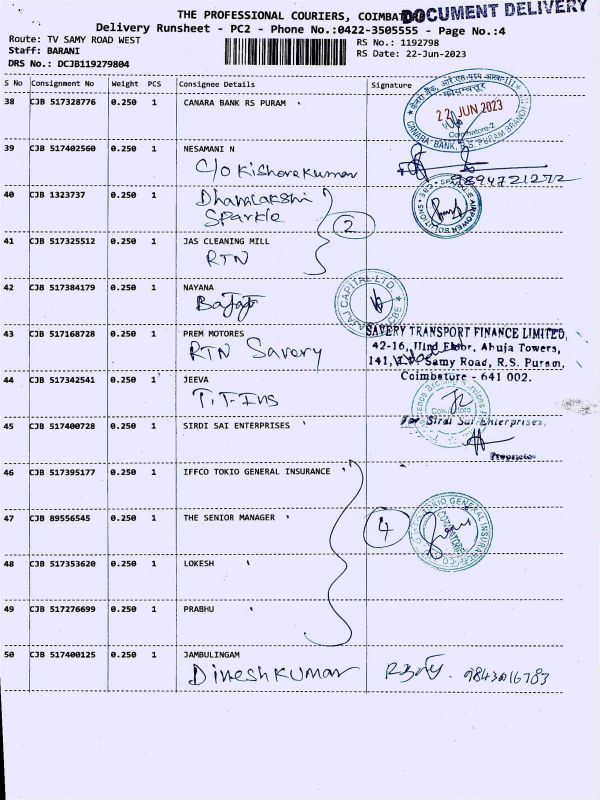 THE PROFESSIONAL COURIERS, COIMBAT
DOCUMENT DELIVERY
Delivery Runsheet - PC2 - Phone No.:0422-3505555 - Page No.:4
Route: TV SAMY ROAD WEST
RS No.: 1192798
Staff: BARANI
RS Date: 22-Jun-2023
DRS No.: DCJB119279804
S No Consignment No Weight PCS Consignee Details Signature
38 CJB 517328776 0.250 1 CANARA BANK RS PURAM
22 JUN 2023
Coimbatore-2
CANARA BANK, R.S. PURAM BRANCH
39 CJB 517402560 0.250 1 NESAMANI N
C/o Kishorekumar
9894721272
40 CJB 1323737 0.250 1 Dhanalakshi
Sparkle
2
41 CJB 517325512 0.250 1 JAS CLEANING MILL
RTN
42 CJB 517384179 0.250 1 NAYANA
Bajaj
BAJAJ CAPITAL LTD.
43 CJB 517168728 0.250 1 PREM MOTORES
RTN Savery
SAVERY TRANSPORT FINANCE LIMITED,
42-16, IIInd Floor, Ahuja Towers,
141, T.V. Samy Road, R.S. Puram,
Coimbatore - 641 002.
44 CJB 517342541 1 JEEVA
T.T-Ins
Coimbatore
45 CJB 517400728 0.250 1 SIRDI SAI ENTERPRISES
For Sirdi Sai Enterprises,
Proprietor
46 CJB 517395177 0.250 1 IFFCO TOKIO GENERAL INSURANCE
47 CJB 89556545 0.250 1 THE SENIOR MANAGER
4
TOKIO GENERAL INSURANCE CO
COIMBATORE
48 CJB 517353620 0.250 1 LOKESH
49 CJB 517276699 0.250 1 PRABHU
50 CJB 517400125 0.250 1 JAMBULINGAM
Dineshkumar
9843016783